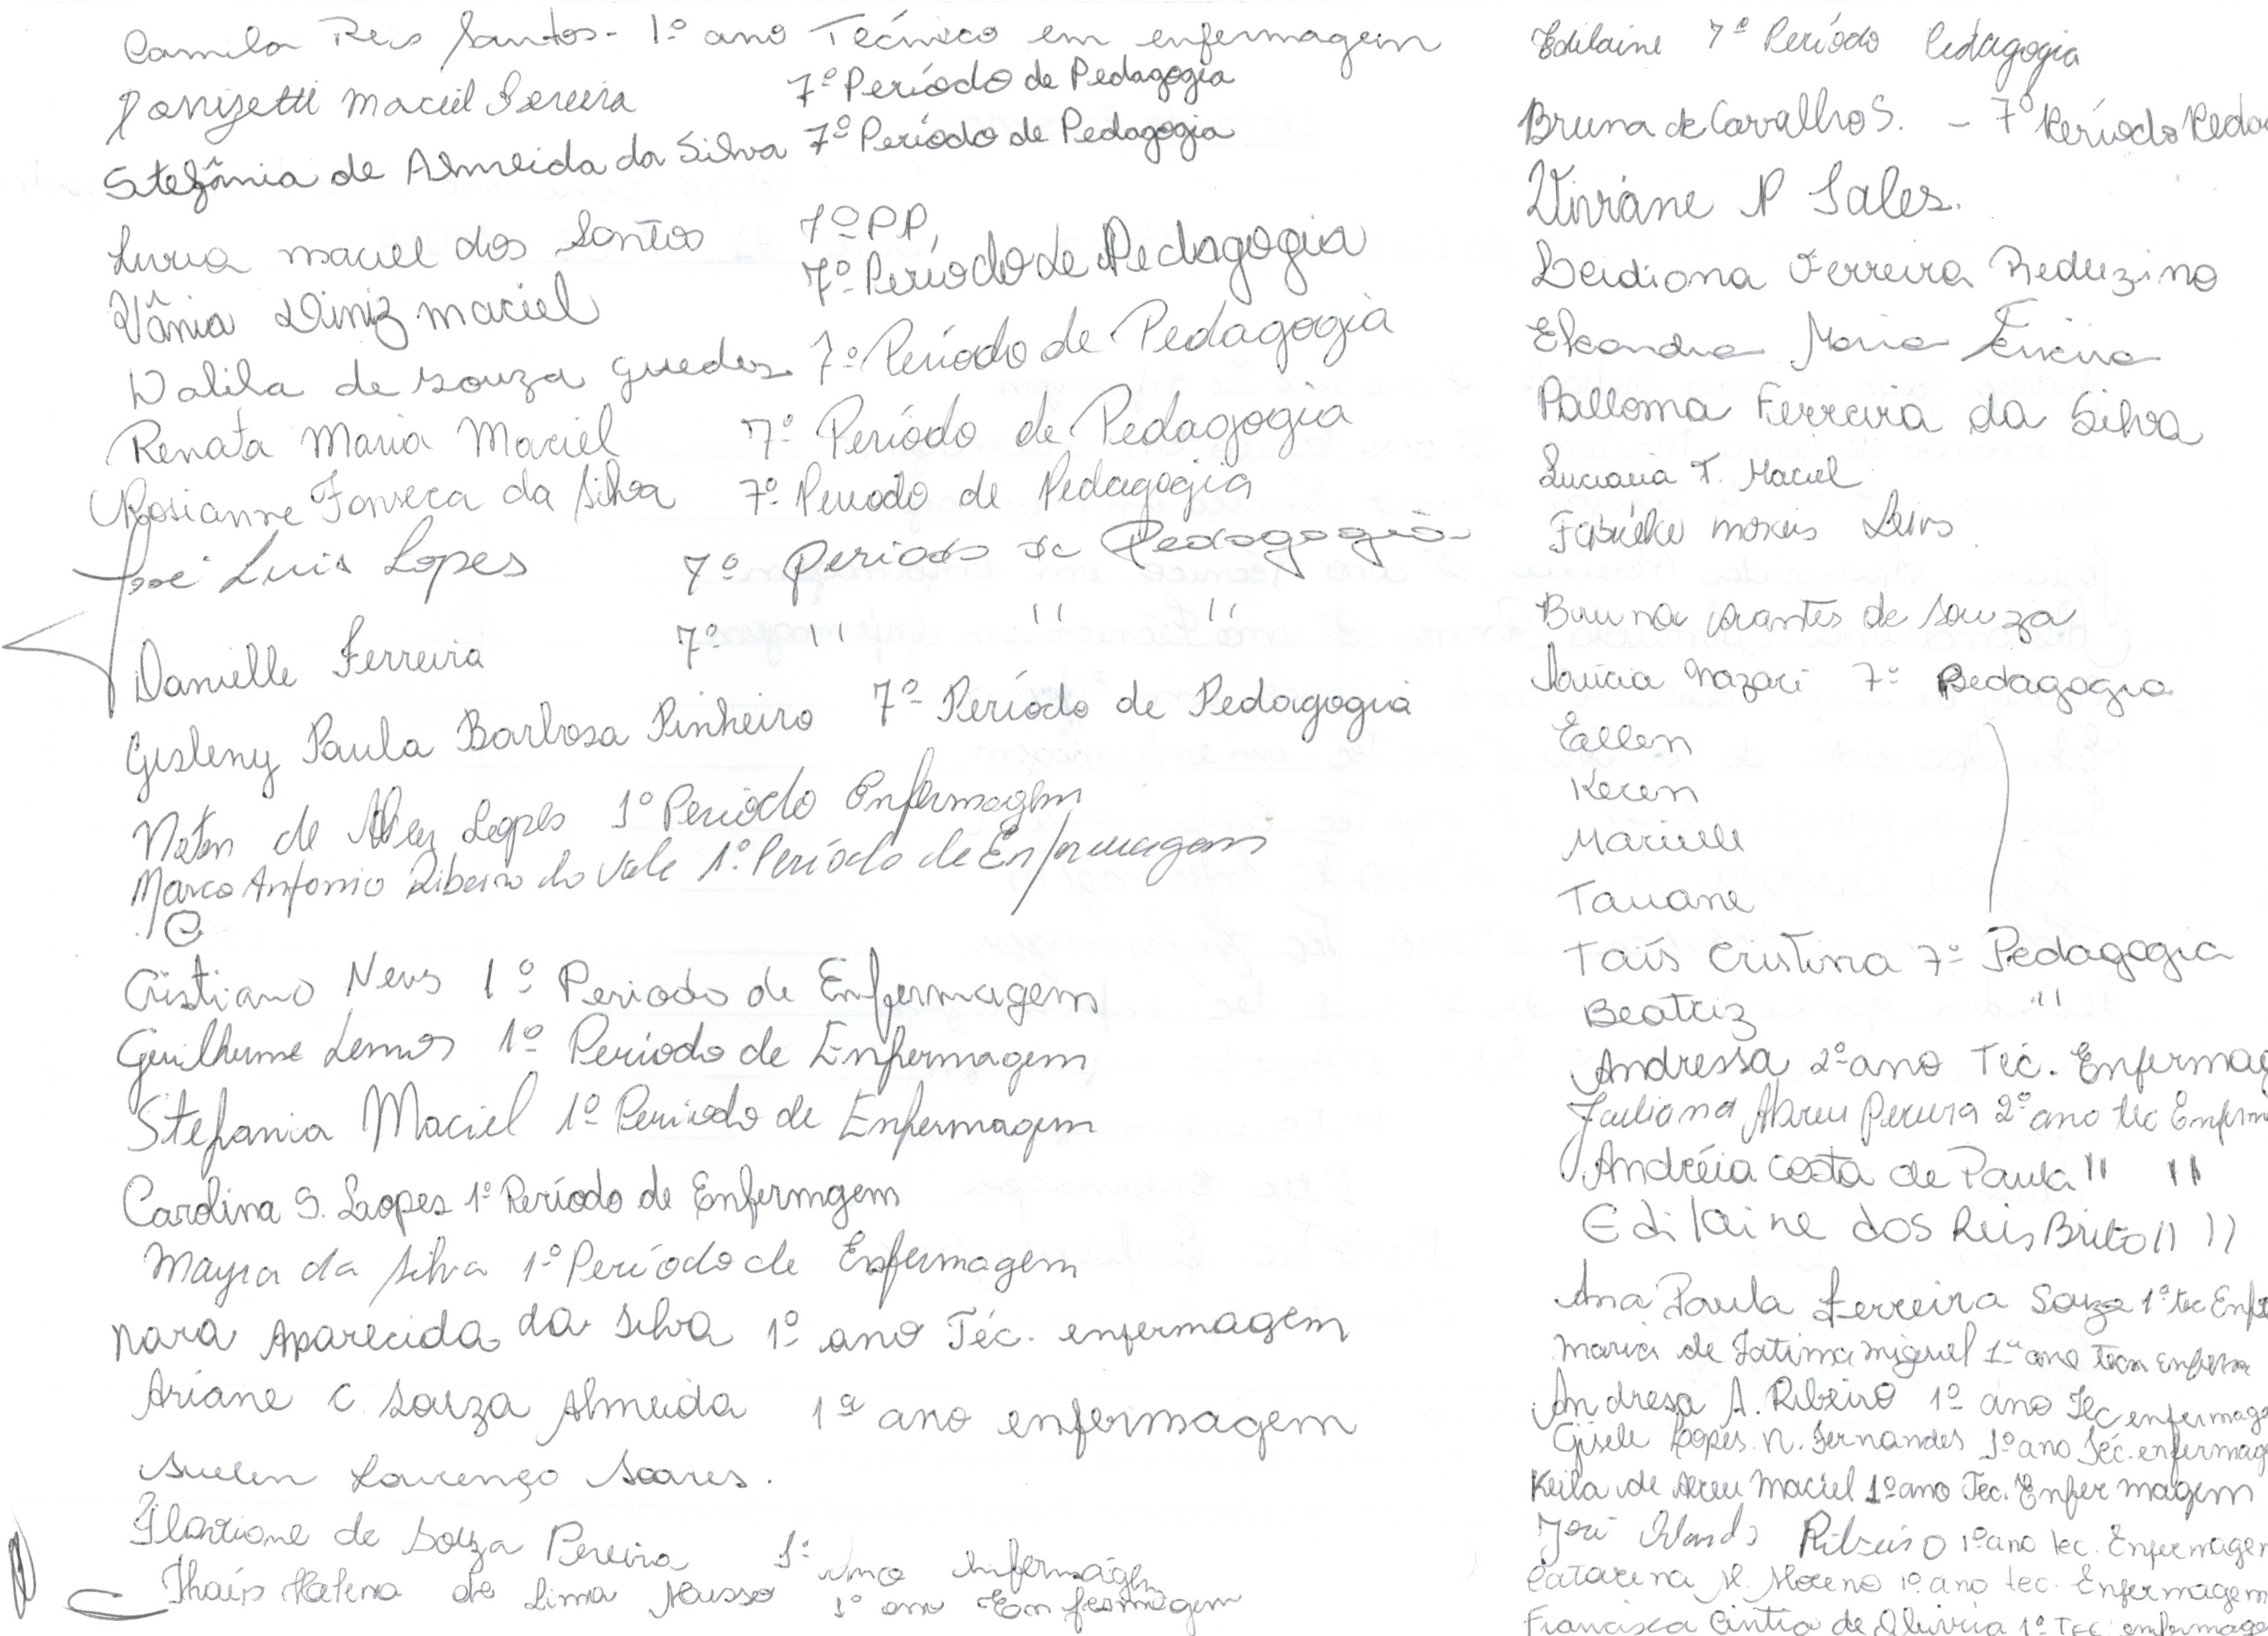 Camila Reis Santos - 1º ano Técnico em enfermagem
Donizetti Maciel Pereira 7º Período de Pedagogia
Stefânia de Almeida da Silva 7º Período de Pedagogia
Luria maciel dos Santos 7º P.P,
Vânia Diniz maciel 7º Período de Pedagogia
Dalila de souza guedes 7º Período de Pedagogia
Renata Maria Maciel 7º Período de Pedagogia
Rosianne Fonseca da Silva 7º Período de Pedagogia
José Luis Lopes 7º período de Pedagogia
Danielle Ferreira 7º " " "
Gesleny Paula Barbosa Pinheiro 7º Período de Pedagogia
de Lopes 1º Período Enfermagem
Marco Antonio Ribeiro do Vale 1º Período de Enfermagem
Cristiano Neves 1º Periodo de Enfermagem
Guilherme Lemos 1º Período de Enfermagem
Stefania Maciel 1º Período de Enfermagem
Carolina S. Lopes 1º Período de Enfermgem
Mayra da Silva 1º Período de Enfermagem
Nara Aparecida da Silva 1º ano Téc. enfermagem
Ariane C Souza Almeida 1º ano enfermagem
Suelen Lourenço Soares.
de Souza Pereira 1º Ano Enfermagem
Thaís Helena de Lima 1º ano Enfermagem
Edilaine 7º Período Pedagogia
Bruna de Carvalho S. - 7º Período Peda
Viviane P Sales.
Leidiana Ferreira Reduzino
Elisandra Maria Ferreira
Palloma Ferreira da Silva
Luciana T. Maciel
morais
Bruna Arantes de Souza
Nazari 7º Pedagogia
Eellen
Keren
Marielle
Tauane
Taís Cristina 7º Pedagogia
Beatriz "
Andressa 2º ano Téc. Enfermag
Juliana Abreu Pereira 2º ano tec Enferm
Andréia Costa de Paula " "
Edilaine dos Reis Brito " "
Ana Paula Ferreira Souza 1º tec Enfe
Maria de Fatima Miguel 1º ano tecn enferm
Andresa A. Ribeiro 1º ano Tec enfermage
Gisele Lopes N. Fernandes 1º ano Téc. enfermag
Keila de Abreu Maciel 1º ano Tec. Enfermagem
José Ribeiro 1º ano tec. Enfermagem
Catarina M. Moreno 1º ano tec. Enfermagem
Francisca Cintia de Oliveira 1º Tec enfermage